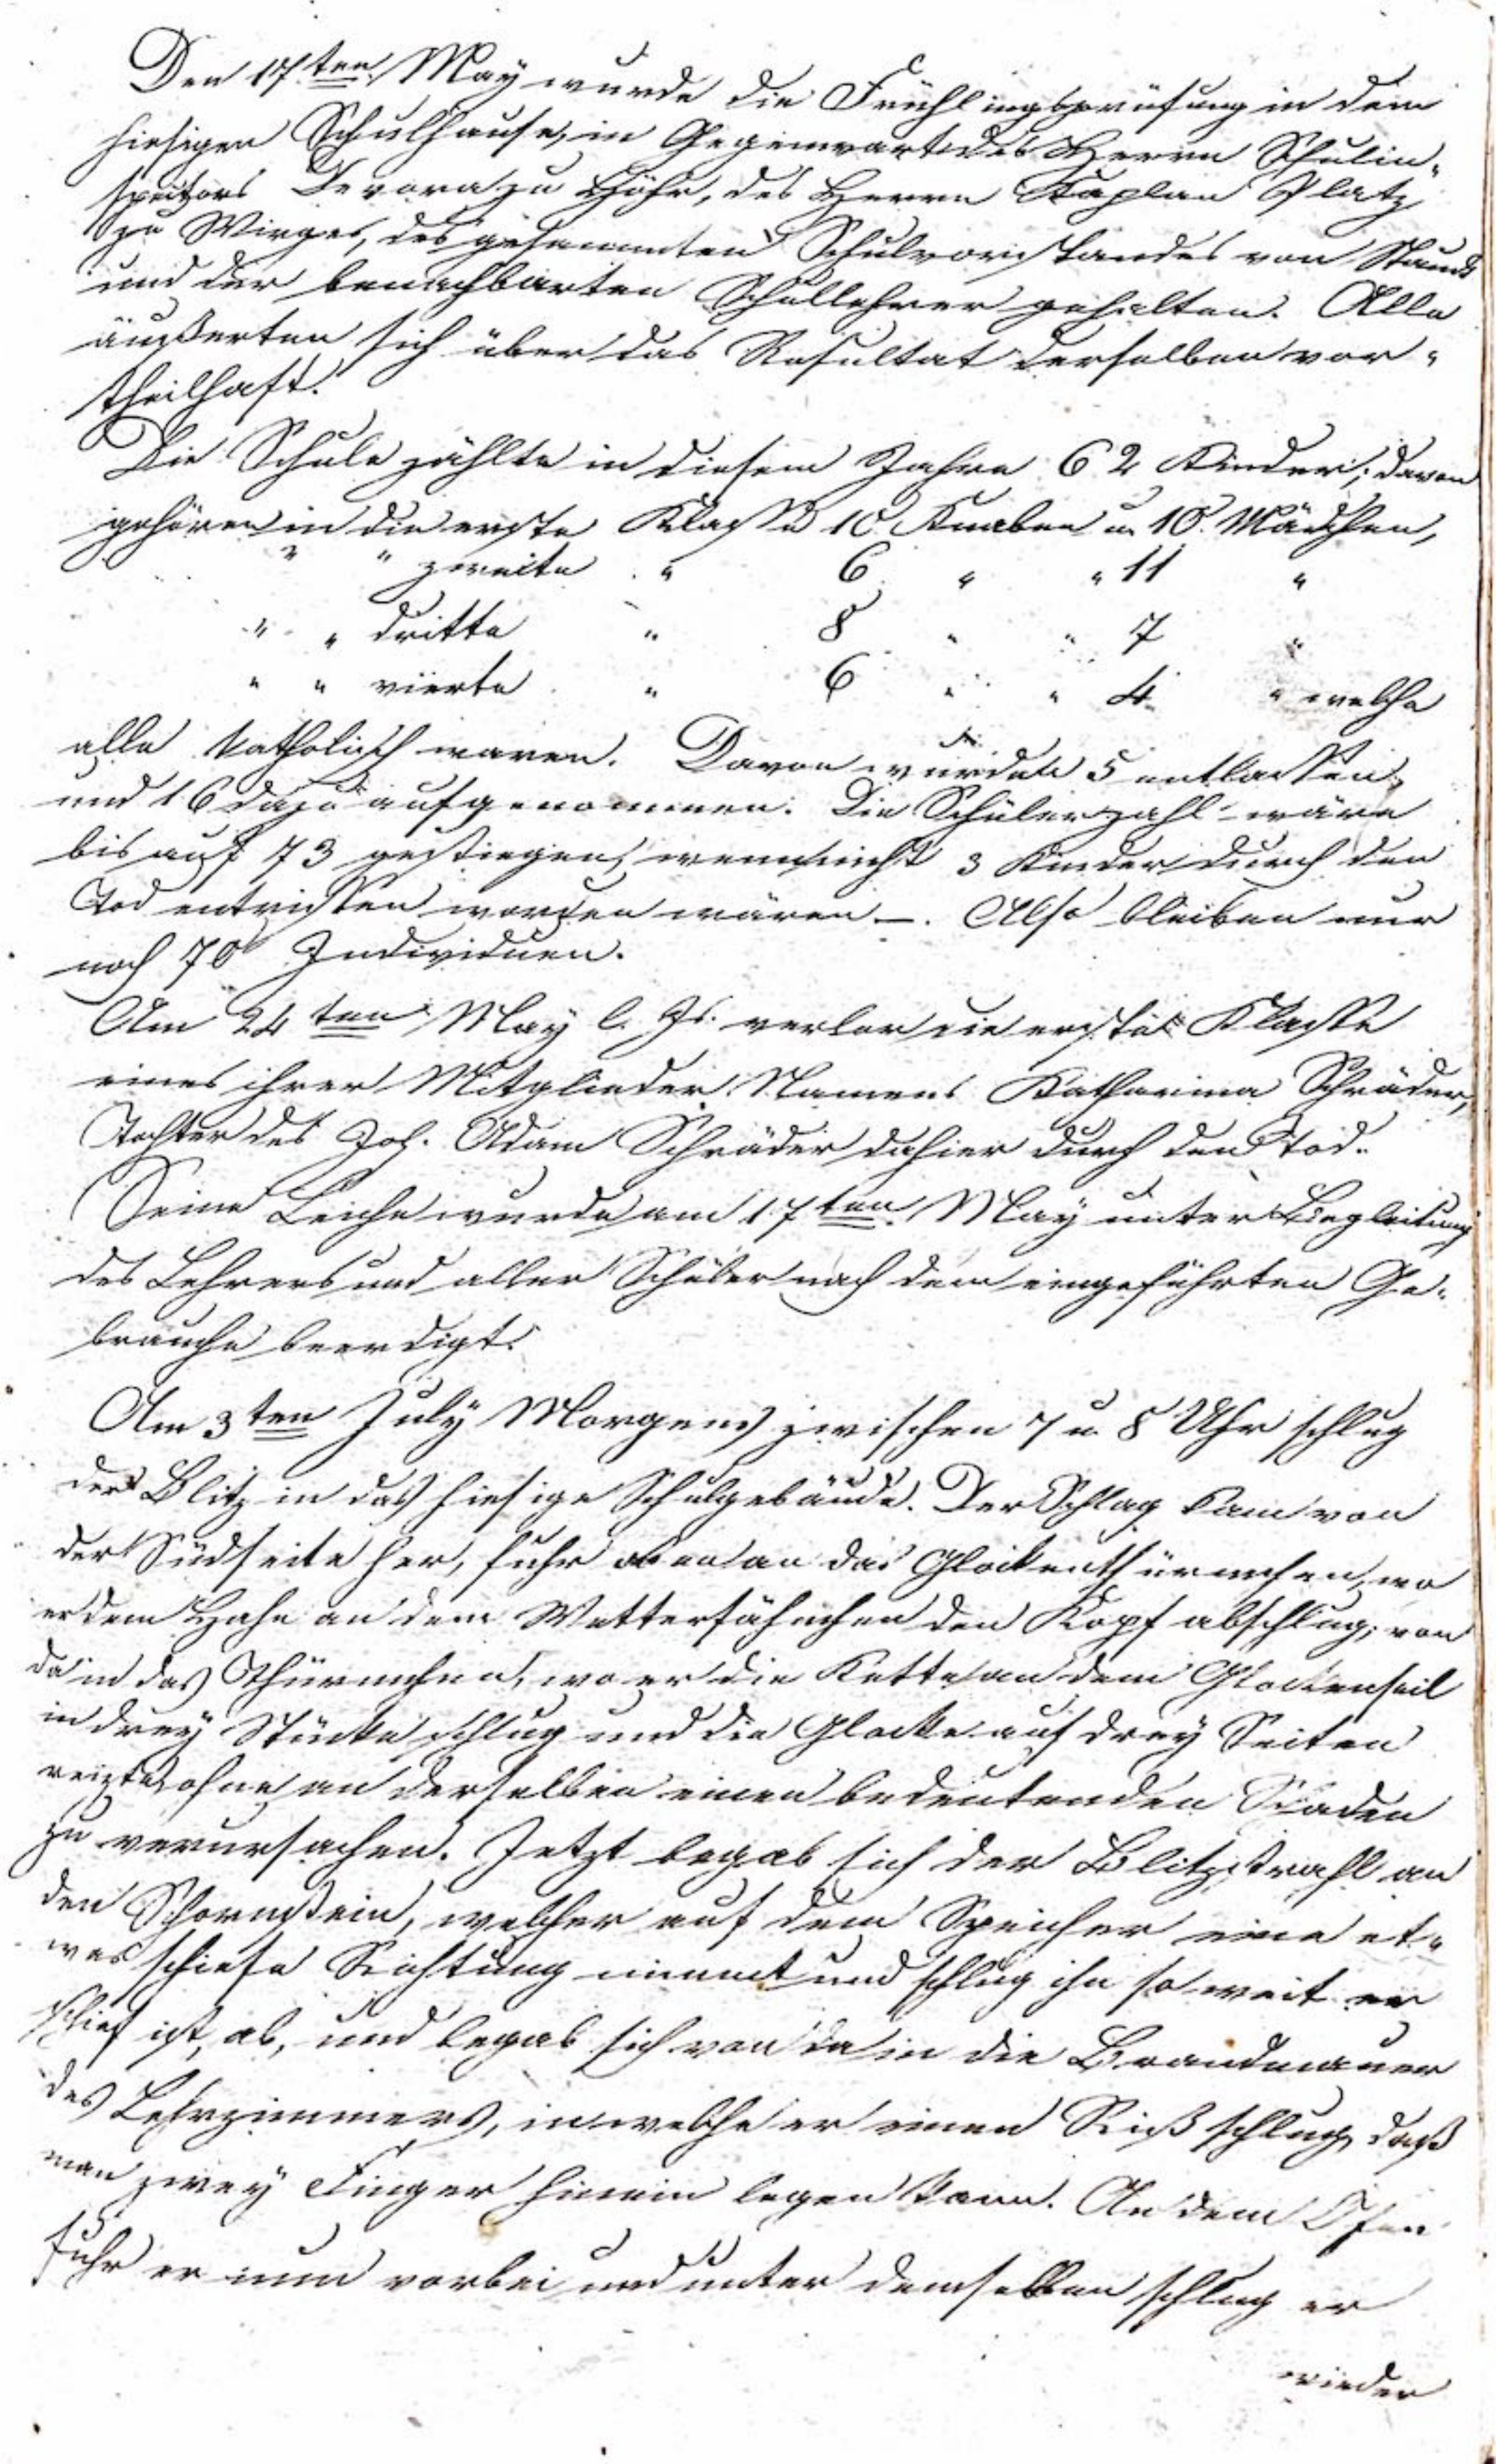 Den 17ten May wurde die Frühlingsprüfung in dem
hiesigen Schulhause, in Gegenwart des Herrn Schulin-
spektors Devora zu Höhr, des Herrn Kaplan Platz
zu Wirges, des gesammten Schulvorstandes von Staudt
und der benachbarten Schullehrer gehalten. Alle
äußerten sich über das Resultat derselben vor-
theilhaft.
Die Schule zählte in diesem Jahre 62 Kinder; davon
gehören in die erste Klasse 10 Knaben u. 10 Mädchen,
" " zweite " 6 " " 11 "
" " dritte " 8 " " 7 "
" " vierte " 6 " " 4 " welche
alle katholisch waren. Davon wurden 5 entlassen,
und 16 dazu aufgenommen. Die Schülerzahl wäre
bis auf 73 gestiegen, wenn nicht 3 Kinder durch den
Tod entrissen worden wären –. Also bleiben nur
noch 70 Individuen.
Am 24ten May l. Js. verlor die erste Klasse
eines ihrer Mitglieder Namens Katharina Schräder,
Tochter des Joh. Adam Schräder dahier durch den Tod.
Seine Leiche wurde am 17ten May unter Begleitung
des Lehrers und aller Schüler nach dem eingeführten Ge-
brauche beerdigt.
Am 3ten July Morgens zwischen 7 u. 8 Uhr schlug
der Blitz in das hiesige Schulgebäude. Der Schlag kam von
der Südseite her, fuhr oben an das Glockenthürmchen, wo
er dem Hahn an dem Wetterfähnchen den Kopf abschlug; von
da in das Thürmchen, wo er die Kette an dem Glockenseil
in drey Stücke schlug und die Glocke auf drey Seiten
reizte, ohne an derselben einen bedeutenden Schaden
zu verursachen. Jetzt begab sich der Blitzstrahl an
den Schornstein, welcher auf dem Speicher eine et-
was schiefe Richtung nimmt und schlug ihn so weit er
schief ist, ab, und begab sich von da in die Brandmauer
des Lehrzimmers, in welche er einen Riß schlug, daß
man zwey Finger hinein legen kann. An dem Ofen
fuhr er nun vorbei und unter demselben schlug er
wieder